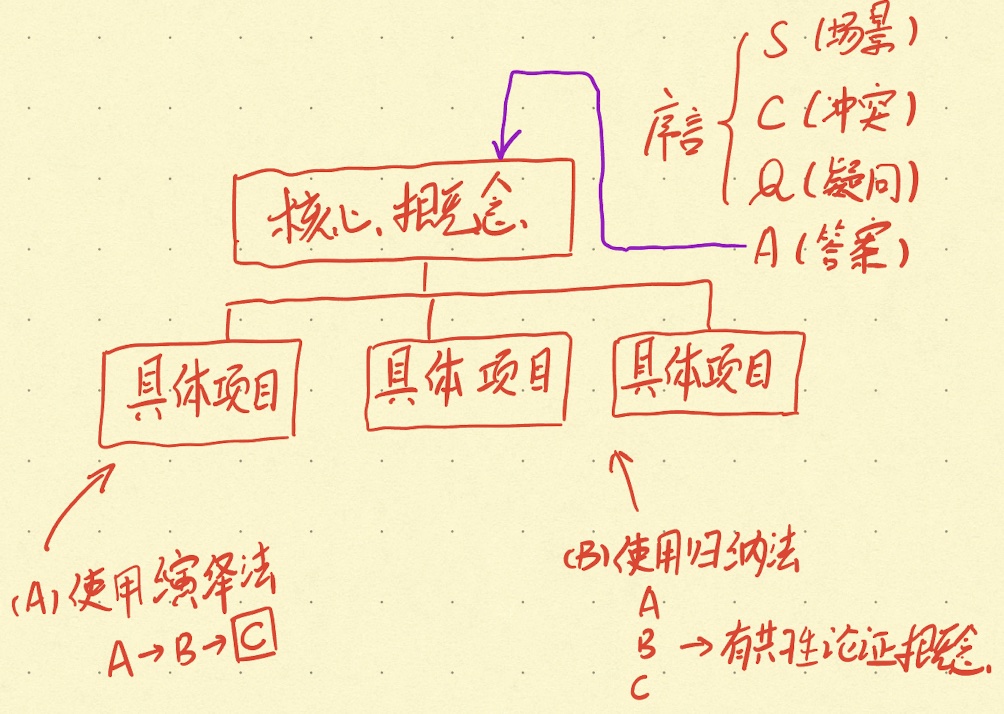 S（场景）
序言
C（冲突）
Q（疑问）
A（答案）
核心概念
具体项目
具体项目
具体项目
(A)使用演绎法
A→B→C
(B)使用归纳法
A
B →有共性论证概念
C